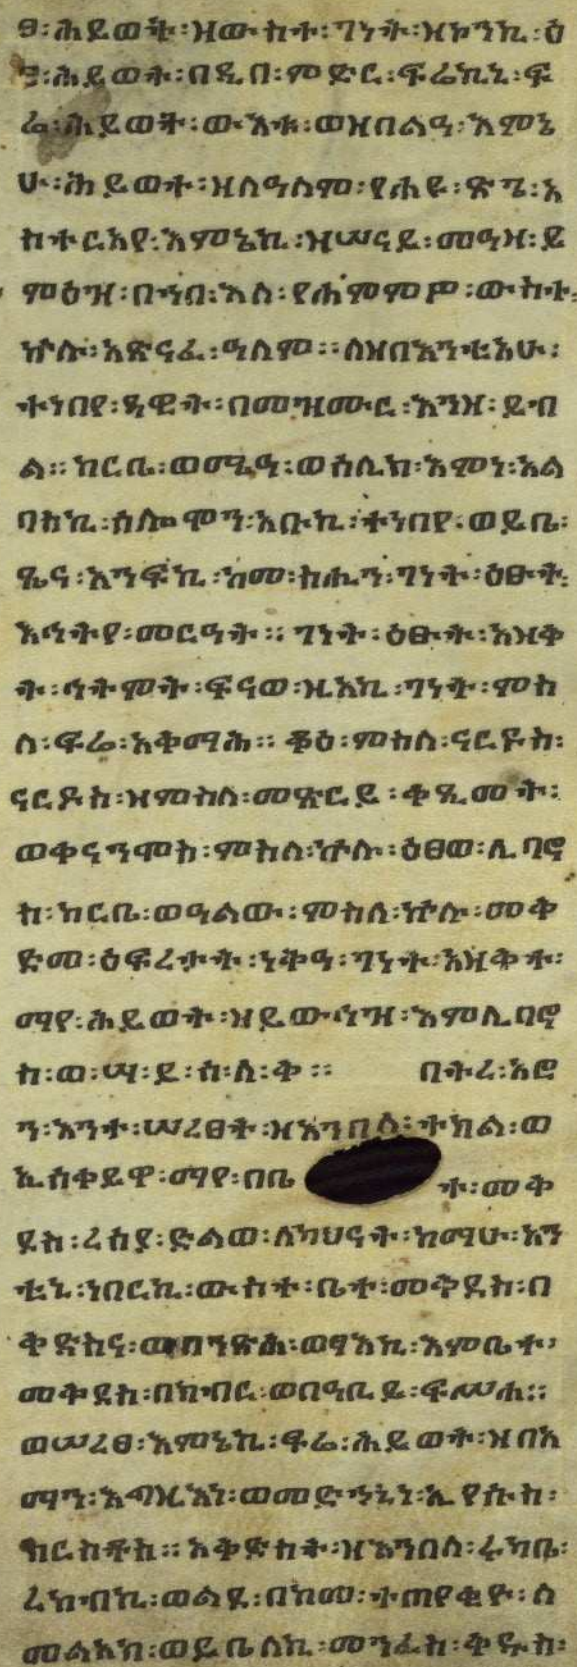 ፀ፡ሕይወት፡ዝውስተ፡ገነት፡ዝኮንኪ፡ዕ
ፀ፡ሕይወት፡በዲበ፡ምድር፡ፍሬኪኒ፡ፍ
ሬ፡ሕይወት፡ውእቱ፡ወዘበልዓ፡እምኔ
ሁ፡ሕይወተ፡ዘለዓለም፡የሐዩ፡ጽጌ፡አ
ስተርአየ፡እምኔኪ፡ዝሠናይ፡መዓዛ፡ይ
ምዕዝ፡በኀበ፡እለ፡የሐምምዎ፡ውስተ፡
ኵሉ፡አጽናፈ፡ዓለም፡፡ስዝበእንቲአሁ፡
ተነበየ፡ዳዊት፡በመዝሙር፡እንዘ፡ይብ
ል፡፡ከርቤ፡ወሚዓ፡ወሰሊክ፡እምነ፡አል
ባስኪ፡ሰሎሞን፡አቡኪ፡ተነበየ፡ወይቤ፡
ጼና፡አንፍኪ፡ከመ፡ስሒን፡ገነት፡ዕፁት፡
እኅትየ፡መርዓት፡፡ገነት፡ዕፁት፡አዘቅ
ት፡ኅትምት፡ፍናወ፡ዚአኪ፡ገነት፡ምስ
ለ፡ፍሬ፡አቅማሕ፡፡ቆዕ፡ምስለ፡ናርዶስ፡
ናርዶስ፡ዝምስለ፡መጽርይ፡ቀጺመት፡
ወቀናንሞስ፡ምስለ፡ኵሉ፡ዕፀወ፡ሊባኖ
ስ፡ከርቤ፡ወዓልው፡ምስለ፡ኵሉ፡መቅ
ድመ፡ዕፍረታት፡ነቅዓ፡ገነት፡አዘቅተ፡
ማየ፡ሕይወት፡ዝይውኅዝ፡እምሊባኖ
ስ፡ወ፡ሣ፡ይ፡ሰ፡ለ፡ቅ፡፡ በትረ፡አሮ
ን፡እንተ፡ሠረፀት፡ዘእንበለ፡ተክል፡ወ
ኢሰቀይዋ፡ማየ፡በቤ ተ፡መቅ
ደስ፡ረሰያ፡ድልወ፡ለካህናት፡ከማሁ፡አን
ቲኒ፡ነበርኪ፡ውስተ፡ቤተ፡መቅደስ፡በ
ቅድስና፡ወበንጽሕ፡ወፃእኪ፡እምቤተ፡
መቅደስ፡በክብር፡ወበዓቢይ፡ፍሥሐ፡፡
ወሠረፀ፡እምኔኪ፡ፍሬ፡ሕይወት፡ዝበአ
ማን፡እግዚእነ፡ወመድኀኒነ፡ኢየሱስ፡
ክርስቶስ፡፡አቅድስት፡ዘእንበለ፡ሩካቤ፡
ረከብኪ፡ወልደ፡በከመ፡ተጠየቂዮ፡ለ
መልአክ፡ወይቤለኪ፡መንፈስ፡ቅዱስ፡